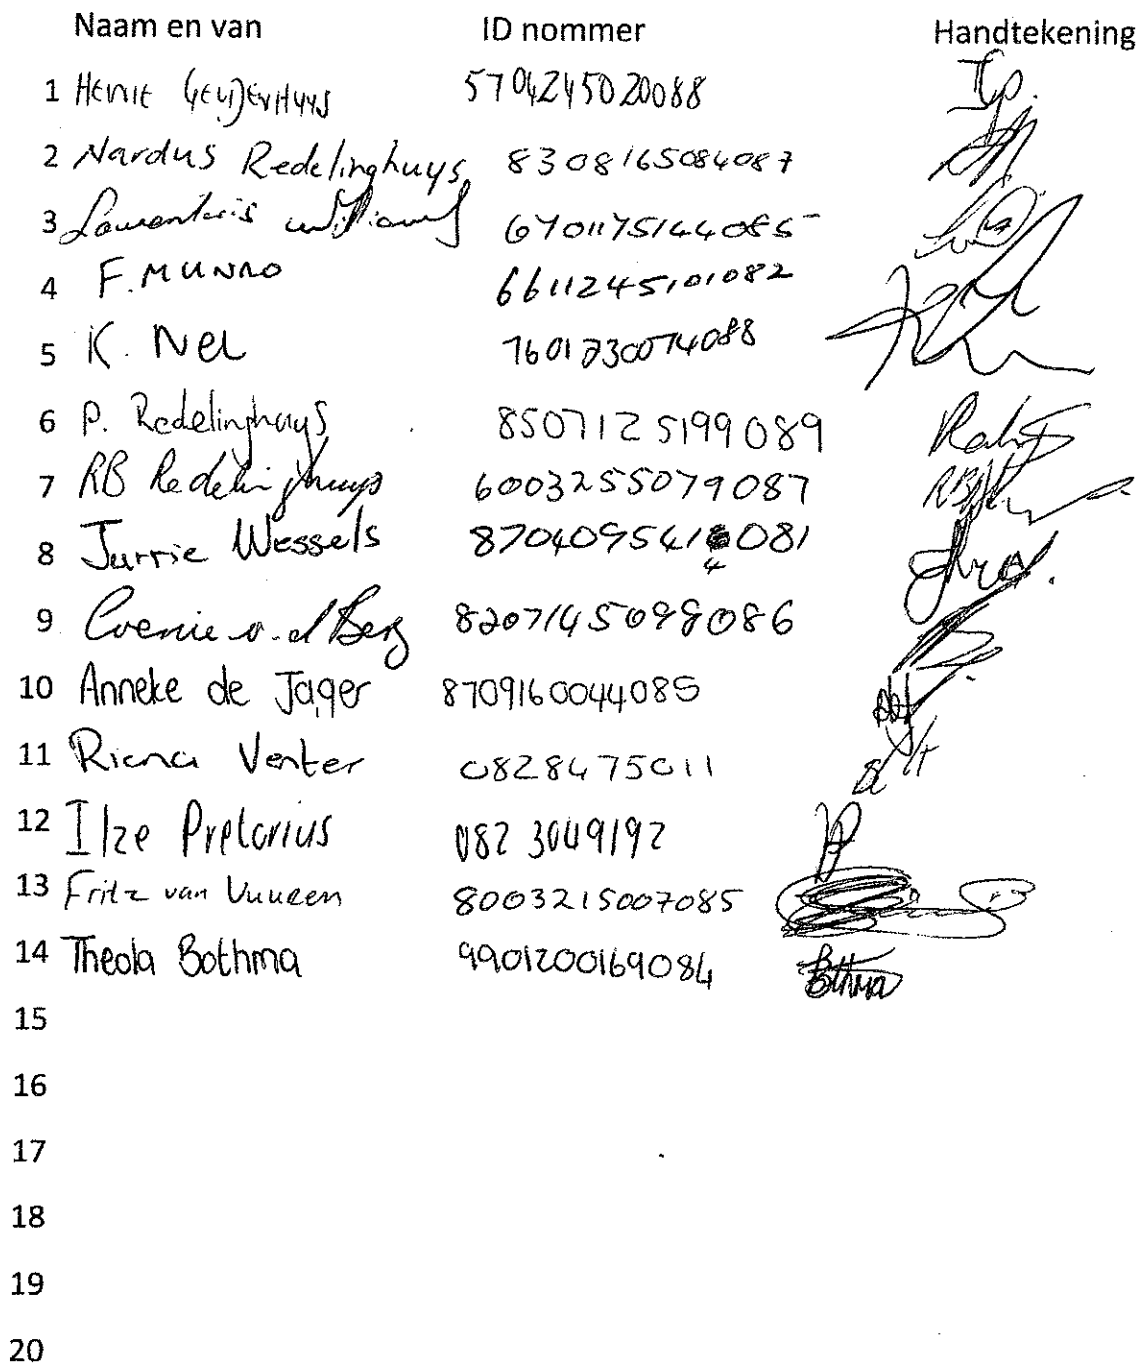 Naam en van ID nommer Handtekening
1 Henie 5704245020088
2 Nardus Redelinghuys 8308165084087
3 6701175144085
4 F. MUNRO 6611245101082
5 K. Nel 0074088
6 P. Redelinghuys 8507125199089
7 RB Redelinghuys 6003255079087
8 Jurrie Wessels
9 Coenie v. d Berg 8207145098086
10 Anneke de Jager 8709160044085
11 Riana Venter 0828475011
12 Ilze Pretorius 082 3049192
13 Fritz van Vuuren 8003215007085
14 Theola Bothma 9901200169084 Bothma
15
16
17
18
19
20